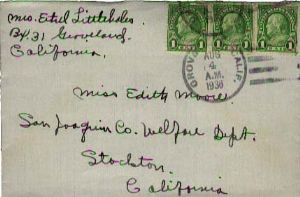 Mrs. Ethel Littlehales
Bx 31 Groveland.
California.
1 1 1
GROVELAND CALIF.
AUG
4
A.M.
1936
Miss Edith Moore
San Joaquin Co. Welfare Dept.
Stockton.
California